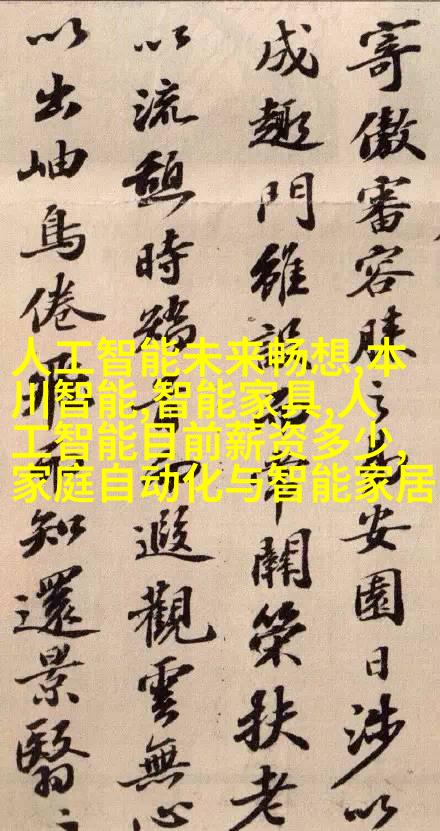 寄傲審容膝之易安園日涉以
成趣門雖設而常關策扶老
以流憩時矯首而遐觀雲無心
以出岫鳥倦飛而知還景翳〻
人工智能未来畅想,本
川智能,智能家具,人
工智能目前薪资多少,
家庭自动化与智能家居